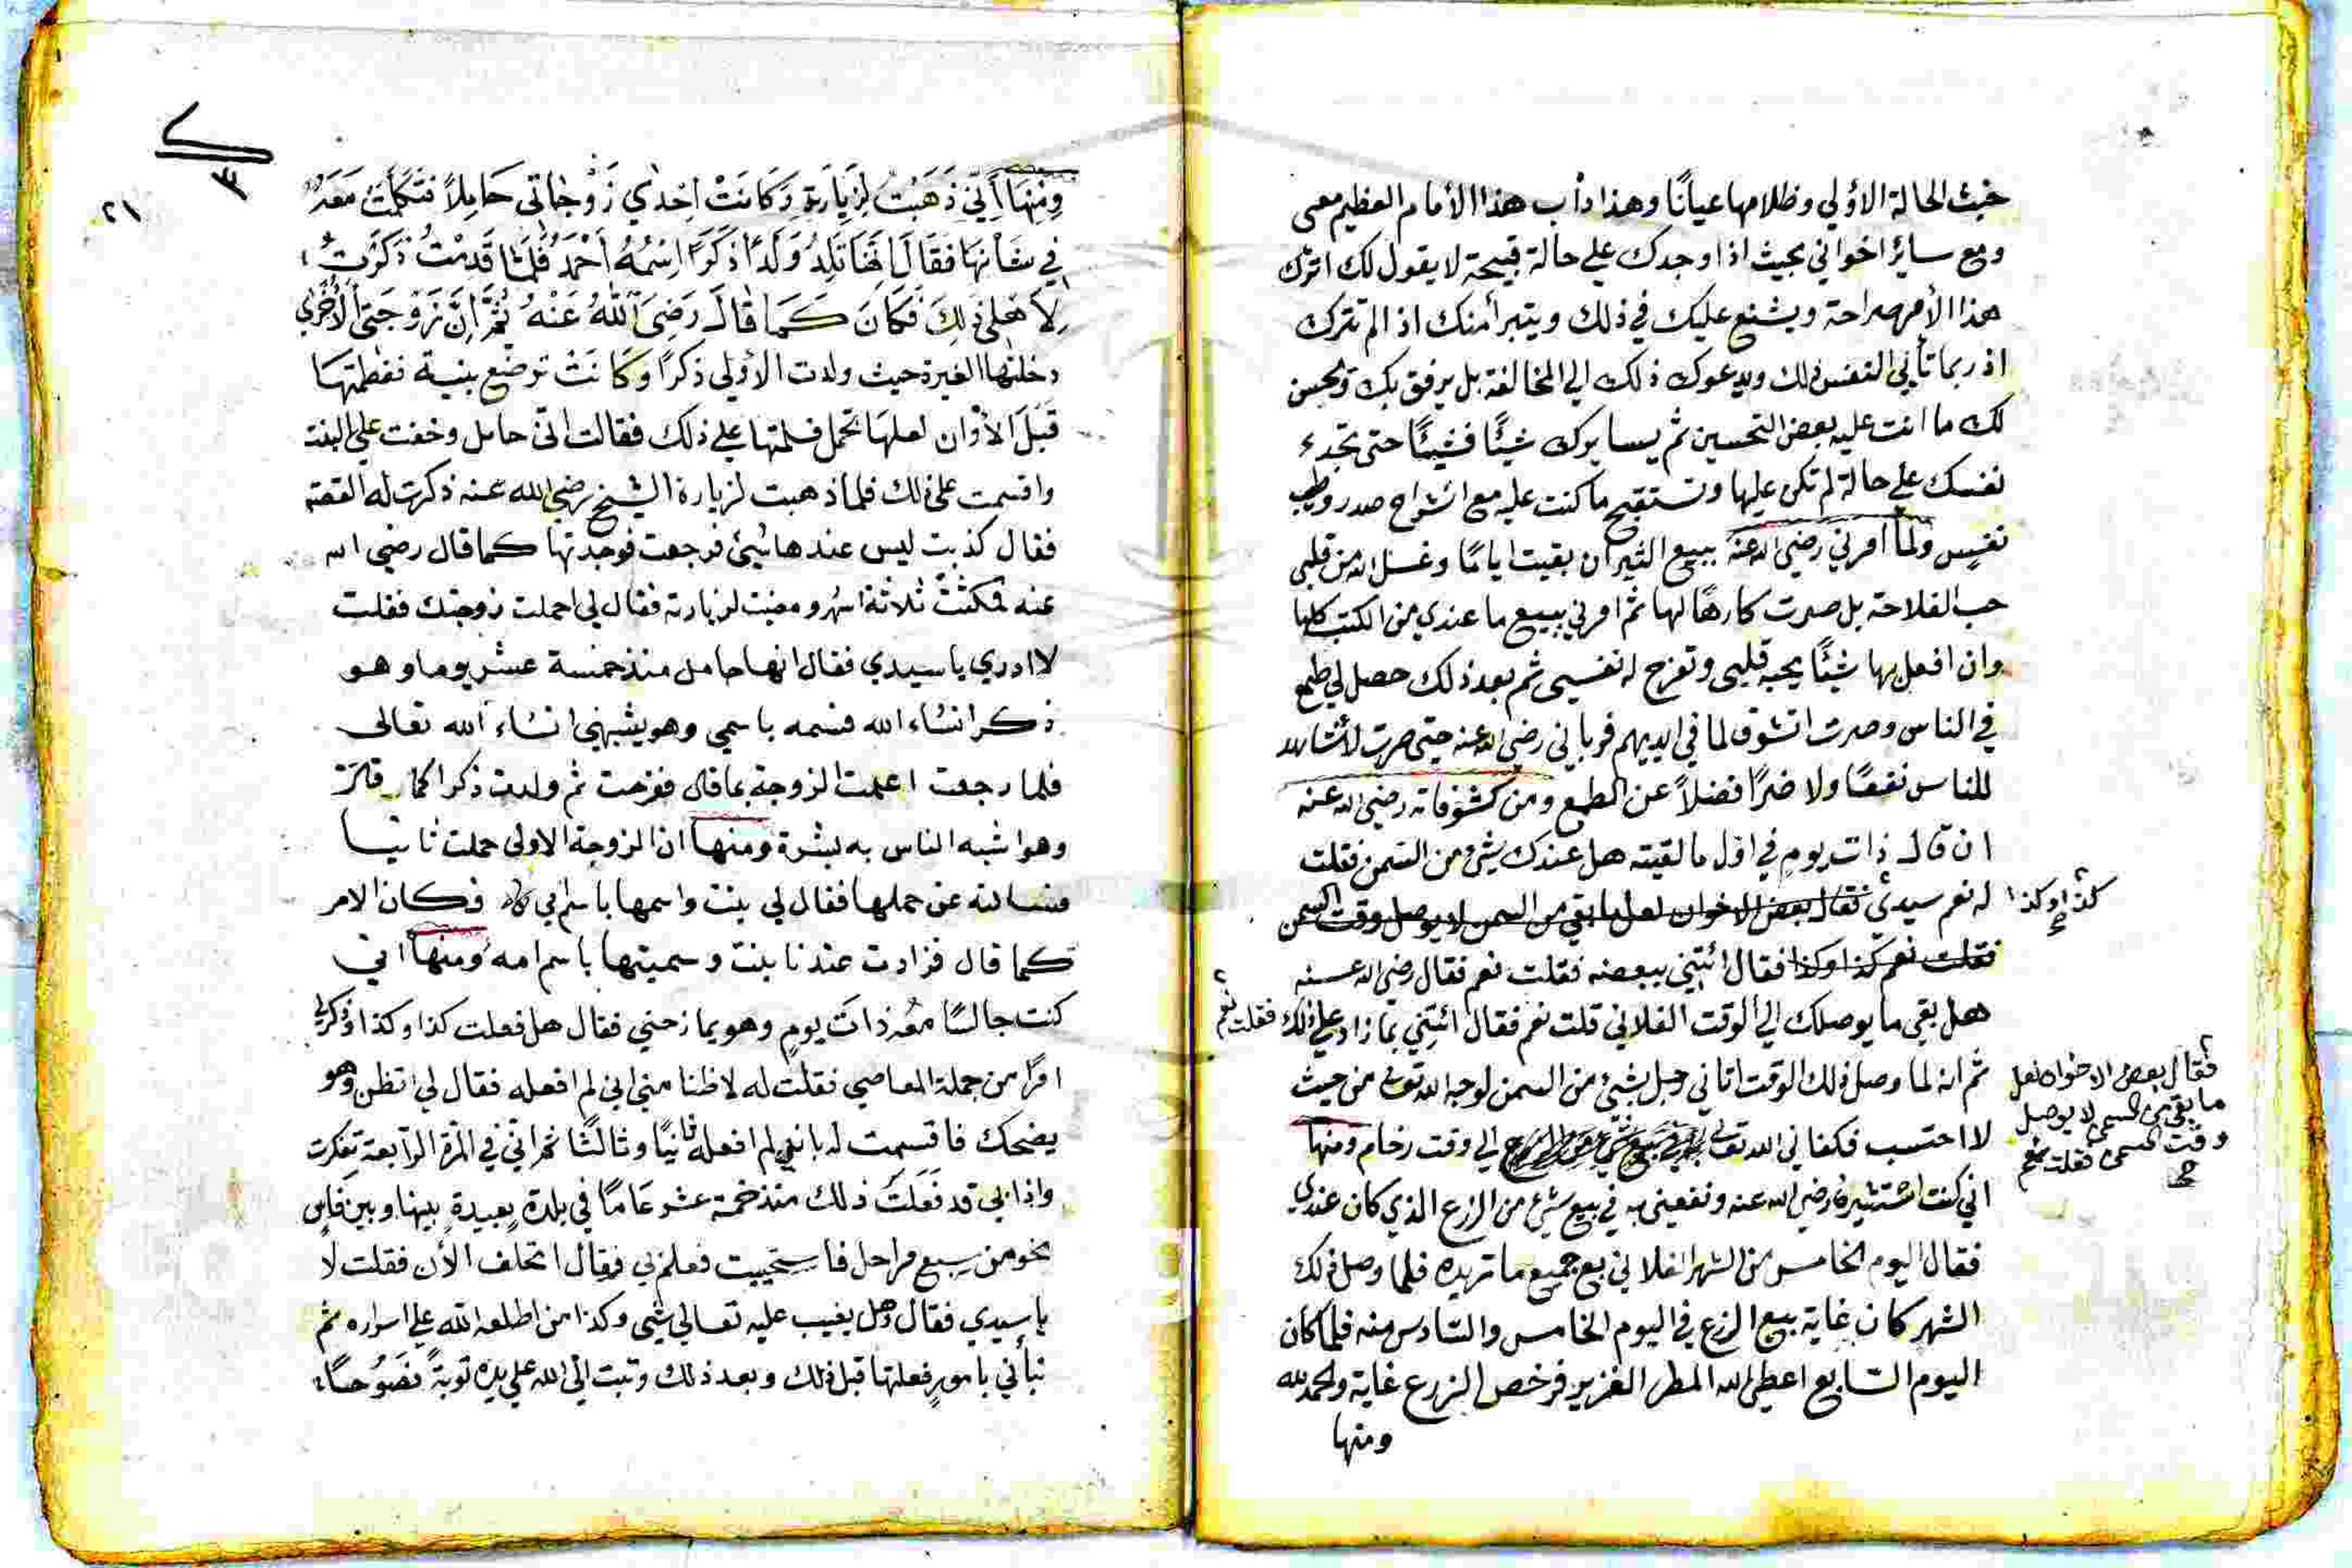 خبث الحالة الأولي وظلامها عيانًا وهذا دأب هذا الأمام العظيم معى
ومع سائر اخواني بحيث اذا وجدك علي حالة قبيحة لا يقول لك اترك
هذا الأمر صراحة ويشنع عليك في ذلك ويتبرأ منك اذ الم تترك
اذ ربما تأبي النفس ذلك ويدعوك ذلك الي المخالفة بل يرفق بك ويحسن
لك ما انت عليه بعض التحسين ثم يسايرك شيئًا فشيئًا حتى تجد
نفسك علي حالة لم تكن عليها وتستقبح ما كنت عليه مع انشراح صدر وطيب
نفس ولما امرني رضي الله عنه ببيع الثيران بقيت ايامًا وغسل الله من قلبي
حب الفلاحة بل صرت كارهًا لها ثم امرني ببيع ما عندي من الكتب كلها
وان افعل بها شيئًا يحبه قلبى وتفرح له نفسى ثم بعد ذلك حصل لي طمع
في الناس وصرت اتشوف لما في ايديهم فرباني رضي الله عنه حتى صرت لا أشاهد
للناس نفعًا ولا ضرًا فضلاً عن الطمع ومن كشوفاته رضي الله عنه
ان قال ذات يوم في اول ما لقيته هل عندك شيء من السمن فقلت
له نعم سيدي فقال بعض الاخوان لعل ما بقي من السمن لا يوصل وقت السمن
كذا وكذا
فقلت نعم كذا وكذا فقال ائتني ببعضه فقلت نعم فقال رضي الله عنه
هل بقي ما يوصلك الي الوقت الفلاني قلت نعم فقال ائتني بما زاد علي ذلك فقلت نعم
ثم انه لما وصل ذلك الوقت اتاني رجل بشيئ من السمن لوجه الله تعالى من حيث
فقال بعض الاخوان لعل
ما بقي من السمن لا يوصل
وقت السمن فقلت نعم
صح
لا احتسب فكفاني الله تعالى الي وقت رخام ومنها
اني كنت استشيره رضي الله عنه ونفعني به في بيع شيء من الزرع الذي كان عندي
فقال اليوم الخامس من الشهر الفلاني بع جميع ما تريده فلما وصل ذلك
الشهر كان غاية بيع الزرع في اليوم الخامس والسادس منه فلما كان
اليوم السابع اعطي الله المطر الغزير فرخص الزرع غاية والحمد لله
ومنها
٢١
٣
وَمِنْهَا أَنِّي ذَهَبْتُ لِزِيَارَتِهِ وَكَانَتْ اِحْدَي زَوْجَاتي حَامِلاً فَتَكَلَّمْتُ مَعَهُ
فِي شَأْنِهَا فَقَالَ اِنَّهَا تَلِدُ وَلَدًا ذَكَرًا اِسْمُهُ اَحْمَدُ فَلَمَّا قَدِمْتُ ذَكَرْتُ
لِاَهْلِي ذَلِكَ فَكَانَ كَمَا قَالَ رَضِىَ اللهُ عَنْهُ ثُمَّ اِنَّ زَوْجَتِى الْاُخْرَي
دخلتها الغيرة حيث ولدت الأولي ذكرًا وكانت ترضع بنية ففطمتها
قبل الأوان لعلها تحمل فلمتها علي ذلك فقالت انى حامل وخفت علي البنت
واقسمت علي ذلك فلما ذهبت لزيارة الشيخ رضي الله عنه ذكرت له القصة
فقال كذبت ليس عندها شيئ فرجعت فوجدتها كما قال رضي الله
عنه فمكثت ثلاثة اشهر ومضيت لزيارته فقال لي احملت زوجتك فقلت
لا ادري يا سيدي فقال انها حامل منذ خمسة عشر يوما وهو
ذكر انشاء الله فسمه باسمي وهو يشبهني انشاء الله تعالى
فلما رجعت اعلمت الزوجة بما قال ففرحت ثم ولدت ذكرا كما قال
وهو اشبه الناس به بشرة ومنها ان الزوجة الاولى حملت ثانيا
فسالته عن حملها فقال لي بنت واسمها باسم امي فكان الامر
كما قال فزادت عندنا بنت وسميتها باسم امه ومنها اني
كنت جالسًا معه ذات يوم وهو يمازحني فقال هل فعلت كذا وكذا وذكر لي
امرًا من جملة المعاصي فقلت له لا ظنا مني اني لم افعله فقال لي انظر وهو
يضحك فاقسمت له باني لم افعله ثانيًا وثالثًا ثم اني في المرة الرابعة تفكرت
واذا بي قد فعلت ذلك منذ خمسة عشر عامًا في بلدة بعيدة بينها وبين فاس
نحو من سبع مراحل فاستحييت فعلم بي فقال اتحلف الأن فقلت لا
يا سيدي فقال وهل يغيب عليه تعالي شيى وكذا من اطلعه الله علي اسراره ثم
نبأني بامور فعلتها قبل ذلك وبعد ذلك وتبت الي الله علي يده توبة نصوحًا